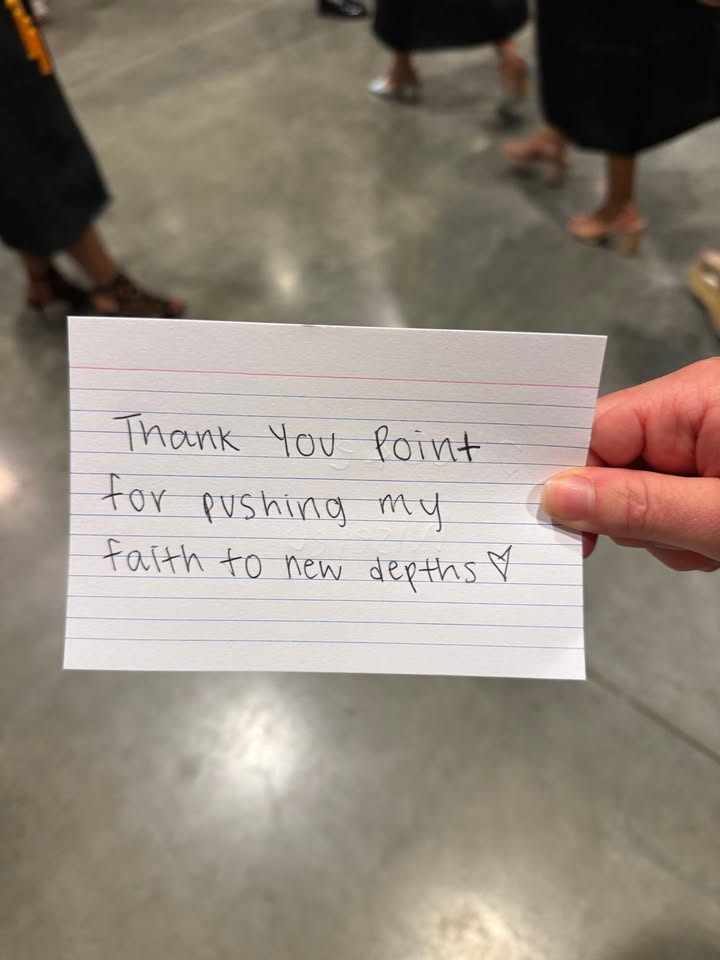 Thank You Point
for pushing my
faith to new depths ♡